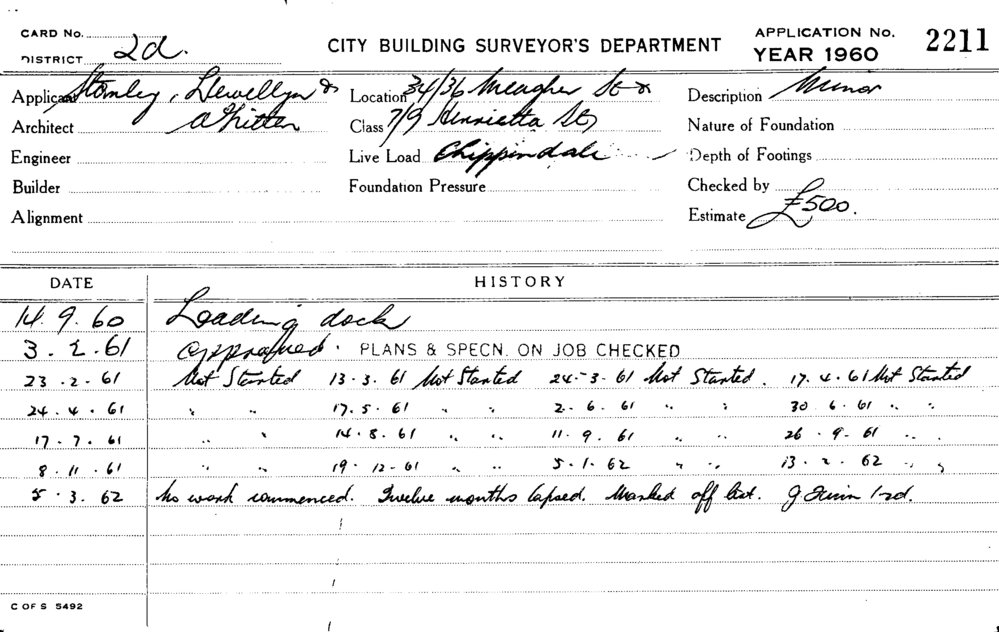 CARD No.
DISTRICT 2d.
CITY BUILDING SURVEYOR'S DEPARTMENT
APPLICATION No.
YEAR 1960
2211
Applicant Stomley, Llewellyn &
Location 34/36 Meagher St &
Description Minor
Architect
Class 7/9 Henrietta St,
Nature of Foundation
Engineer
Live Load Chippindale
Depth of Footings
Builder
Foundation Pressure
Checked by
Alignment
Estimate £500.
DATE HISTORY
14. 9. 60 Loading dock
3. 2. 61 Approved. PLANS & SPECN. ON JOB CHECKED
23 . 2 . 61 Not Started 13 . 3. 61 Not Started 24 - 3 . 61 Not Started. 17. 4. 61 Not Started
24. 4. 61 " " 17. 5. 61 " " 2. 6. 61 " " 30 6. 61 " "
17. 7. 61 " " 14. 8. 61 " " 11. 9. 61 " " 26 . 9. 61 " "
8. 11 . 61 " " 19. 12 - 61 " " 5. 1. 62 " " 13. 2. 62 " "
5 . 3. 62 No work commenced. Twelve months lapsed. Marked off list. J
C OF S 5492